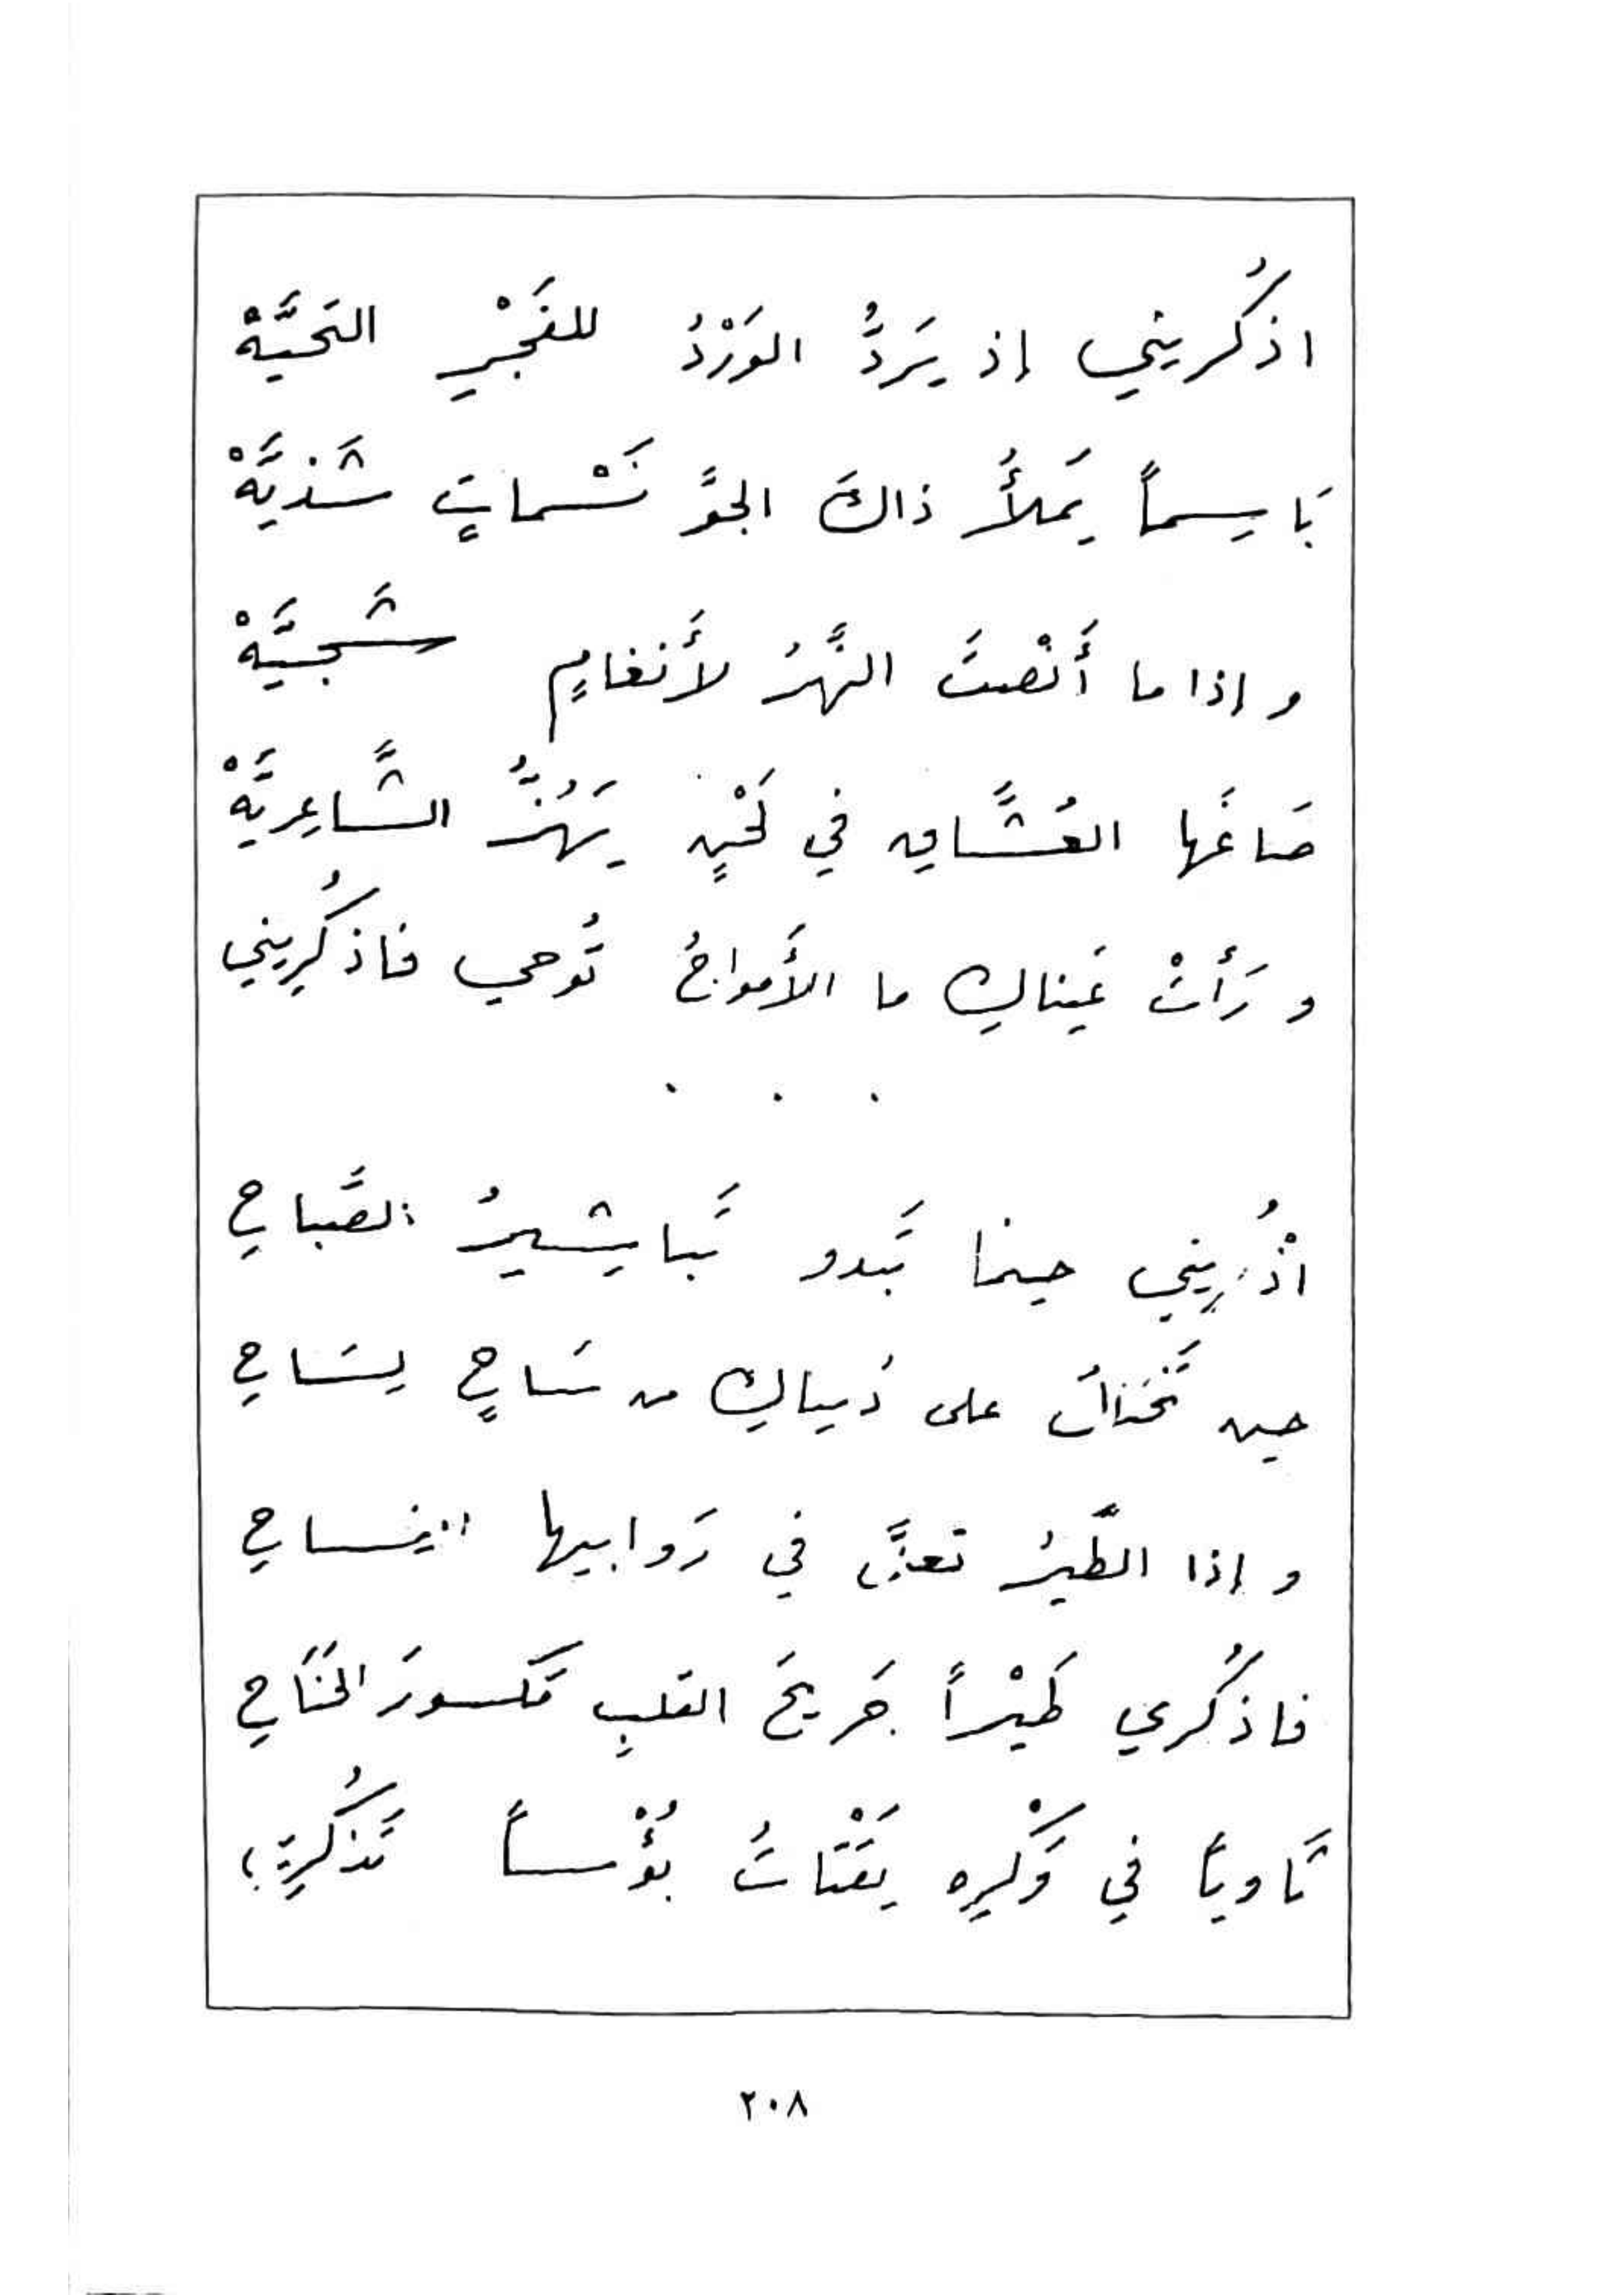 اذكُريني إذ يَردُّ الوَرْدُ للفَجْرِ التَحيَّةْ
بَاسِماً يَملأُ ذاكَ الجوَّ نَسْماتٍ شَذيَّةْ
وإذا ما أَنْصتَ النَّهرُ لأَنغامٍ شَجيَّةْ
صَاغَها العُشَّاق في لَحْنٍ يَهُزُّ الشَّاعِريَّةْ
ورَأَتْ عَيناكِ ما الأَمواجُ تُوحي فاذكُرِيني
. . .
اذْكُرِيني حينما تَبدو تَباشيرُ الصَّباحِ
حين تَختالُ على دُنياكِ من سَاحٍ لِسَاحِ
وإذا الطَّيرُ تعزَّى في رَوابيها
فاذكُري طَيْراً جَريحَ القلبِ مَكسورَ الجَنَاحِ
ثَاوياً في وَكْرِه يَقْتَاتُ بُؤْساً تَذكُرِيني
٢٠٨